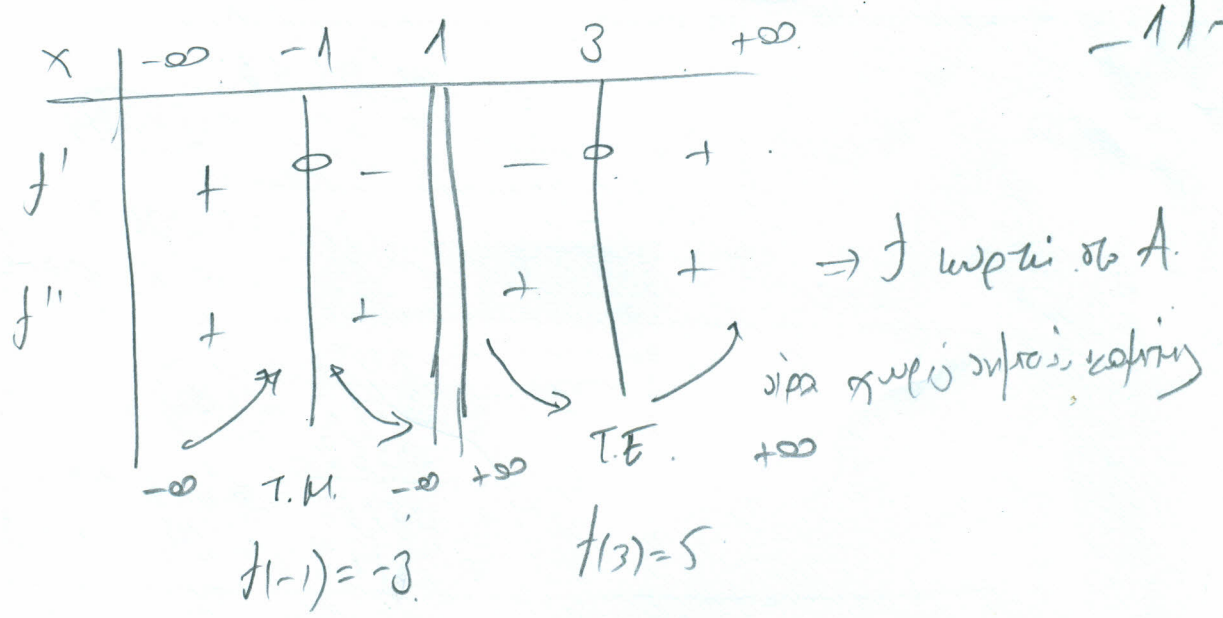 x -∞ -1 1 3 +∞
f' + 0 - - 0 +
f'' + + + + ⇒ f κυρτή στο A.
άρα χωρίς σημεία καμπής
-∞ T.M. -∞ +∞ T.E. +∞
f(-1)=-3 f(3)=5